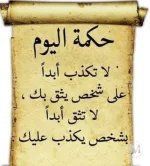 حكمة اليوم
لا تكذب أبداً
على شخص يثق بك ،
لا تثق أبداً
بشخص يكذب عليك